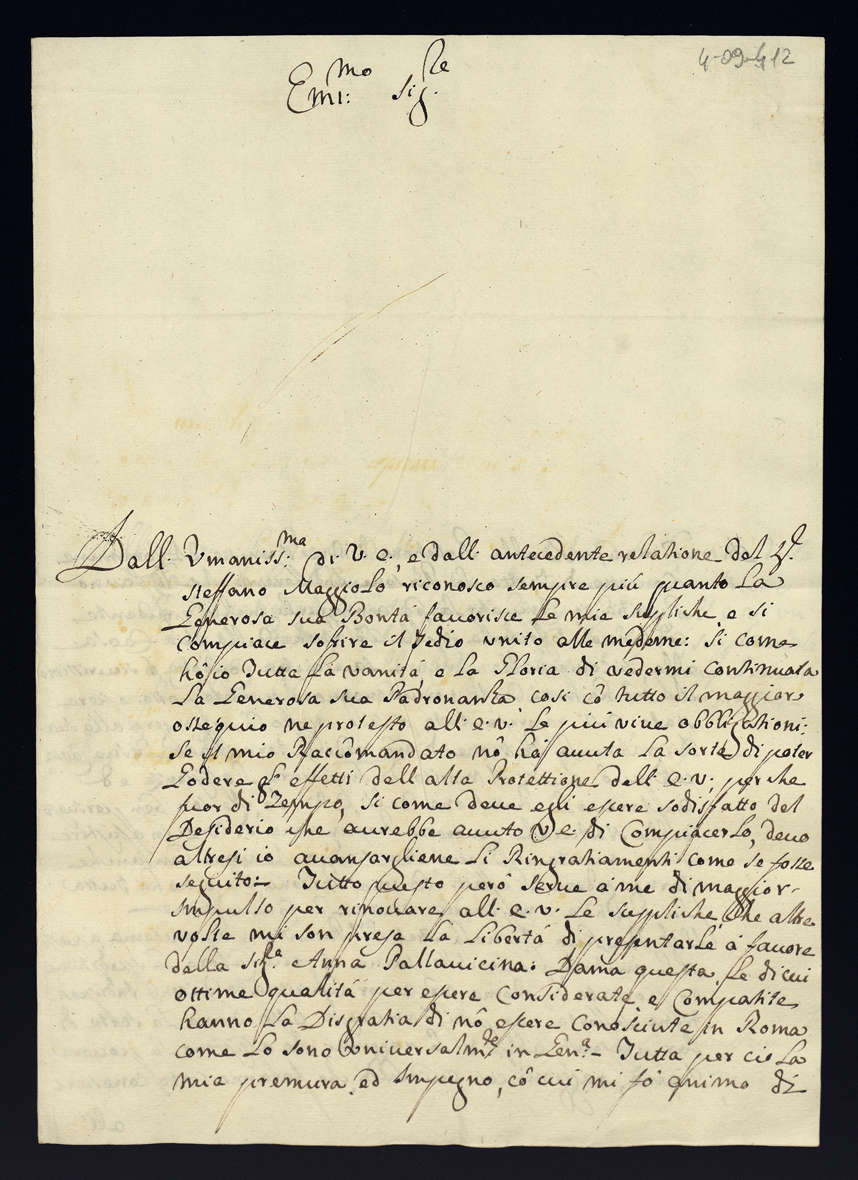 4-09-412
Em.mo Sig.re
Dall. Vmaniss:ma di V. E., e dall. antecedente relatione del
Steffano Maggiolo riconosco sempre più quanto La
Generosa sua Bontá fauorisce Le mie supliche, e si
Compiace sofrire il Tedio vnito alle medeme: Si come
hô io Tutta La vanitá, e La Gloria di vedermi Continuata
La Generosa sua Padronanza, cosi cô tutto il maggior
ossequio ne protesto all. E. V. Le piú viue obbligationi:
Se il mio Raccomandato nô há auuta La sorte di poter
Godere gl. effetti dell alta Protettione dell. E. V., per che
fuor di Tempo, si come deue egli essere sodisfatto del
Desiderio che aurebbe auuto V. E. di Compiacerlo, deuo
altresi io auanzargliene Li Ringratiamenti come se fosse
seguito:- Tutto questo peró serue á me di maggior
Impulso per rinouare all. E. V. Le suppliche, che altre
volte mi son presa La Libertá di presentarle á fauore
della Sig.ra Anna Pallauicina: Dama questa, Le di cui
ottime qualitá per essere Considerate, e Compatite
hanno La Disgratia di nô essere Conosciute in Roma
come Lo sono vniuersalm.te in Gen.a- Tutta per cio La
mia premura, ed Impegno, cô cui mi fô animo di